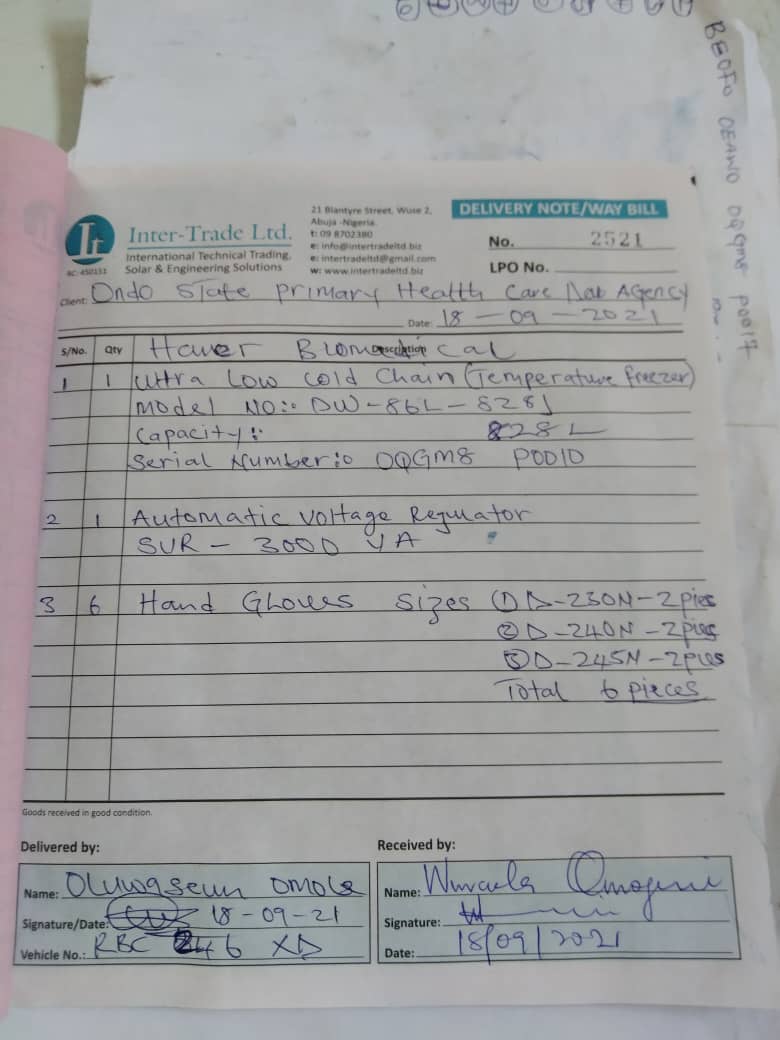 BEOFO OEAWO OQGM8 P0017
It
RC: 450131
Inter-Trade Ltd.
International Technical Trading,
Solar & Engineering Solutions
21 Blantyre Street, Wuse 2,
Abuja -Nigeria.
t: 09 8702380
e: info@intertradeltd.biz
e: intertradeltd@gmail.com
w: www.intertradeltd.biz
DELIVERY NOTE/WAY BILL
No. 2521
LPO No.
Client: Ondo State Primary Health Care Agency
Date: 18-09-2021
S/No. Qty Description
Biomedical
1 1 Ultra Low Cold Chain (Temperature freezer)
Model NO:. DW-86L-828J
Capacity:. 828L
Serial Number:o OQGM8 P0010
2 1 Automatic Voltage Regulator
SVR - 3000 VA
3 6 Hand Gloves Sizes ① D-230N-2pies
② D-240N-2pies
③ D-245N-2pies
Total 6 pieces
Goods received in good condition.
Delivered by:
Name: Oluwaseun Omole
Signature/Date: 18-09-21
Vehicle No.: RBC 246 XD
Received by:
Name:
Signature:
Date: 18/09/2021